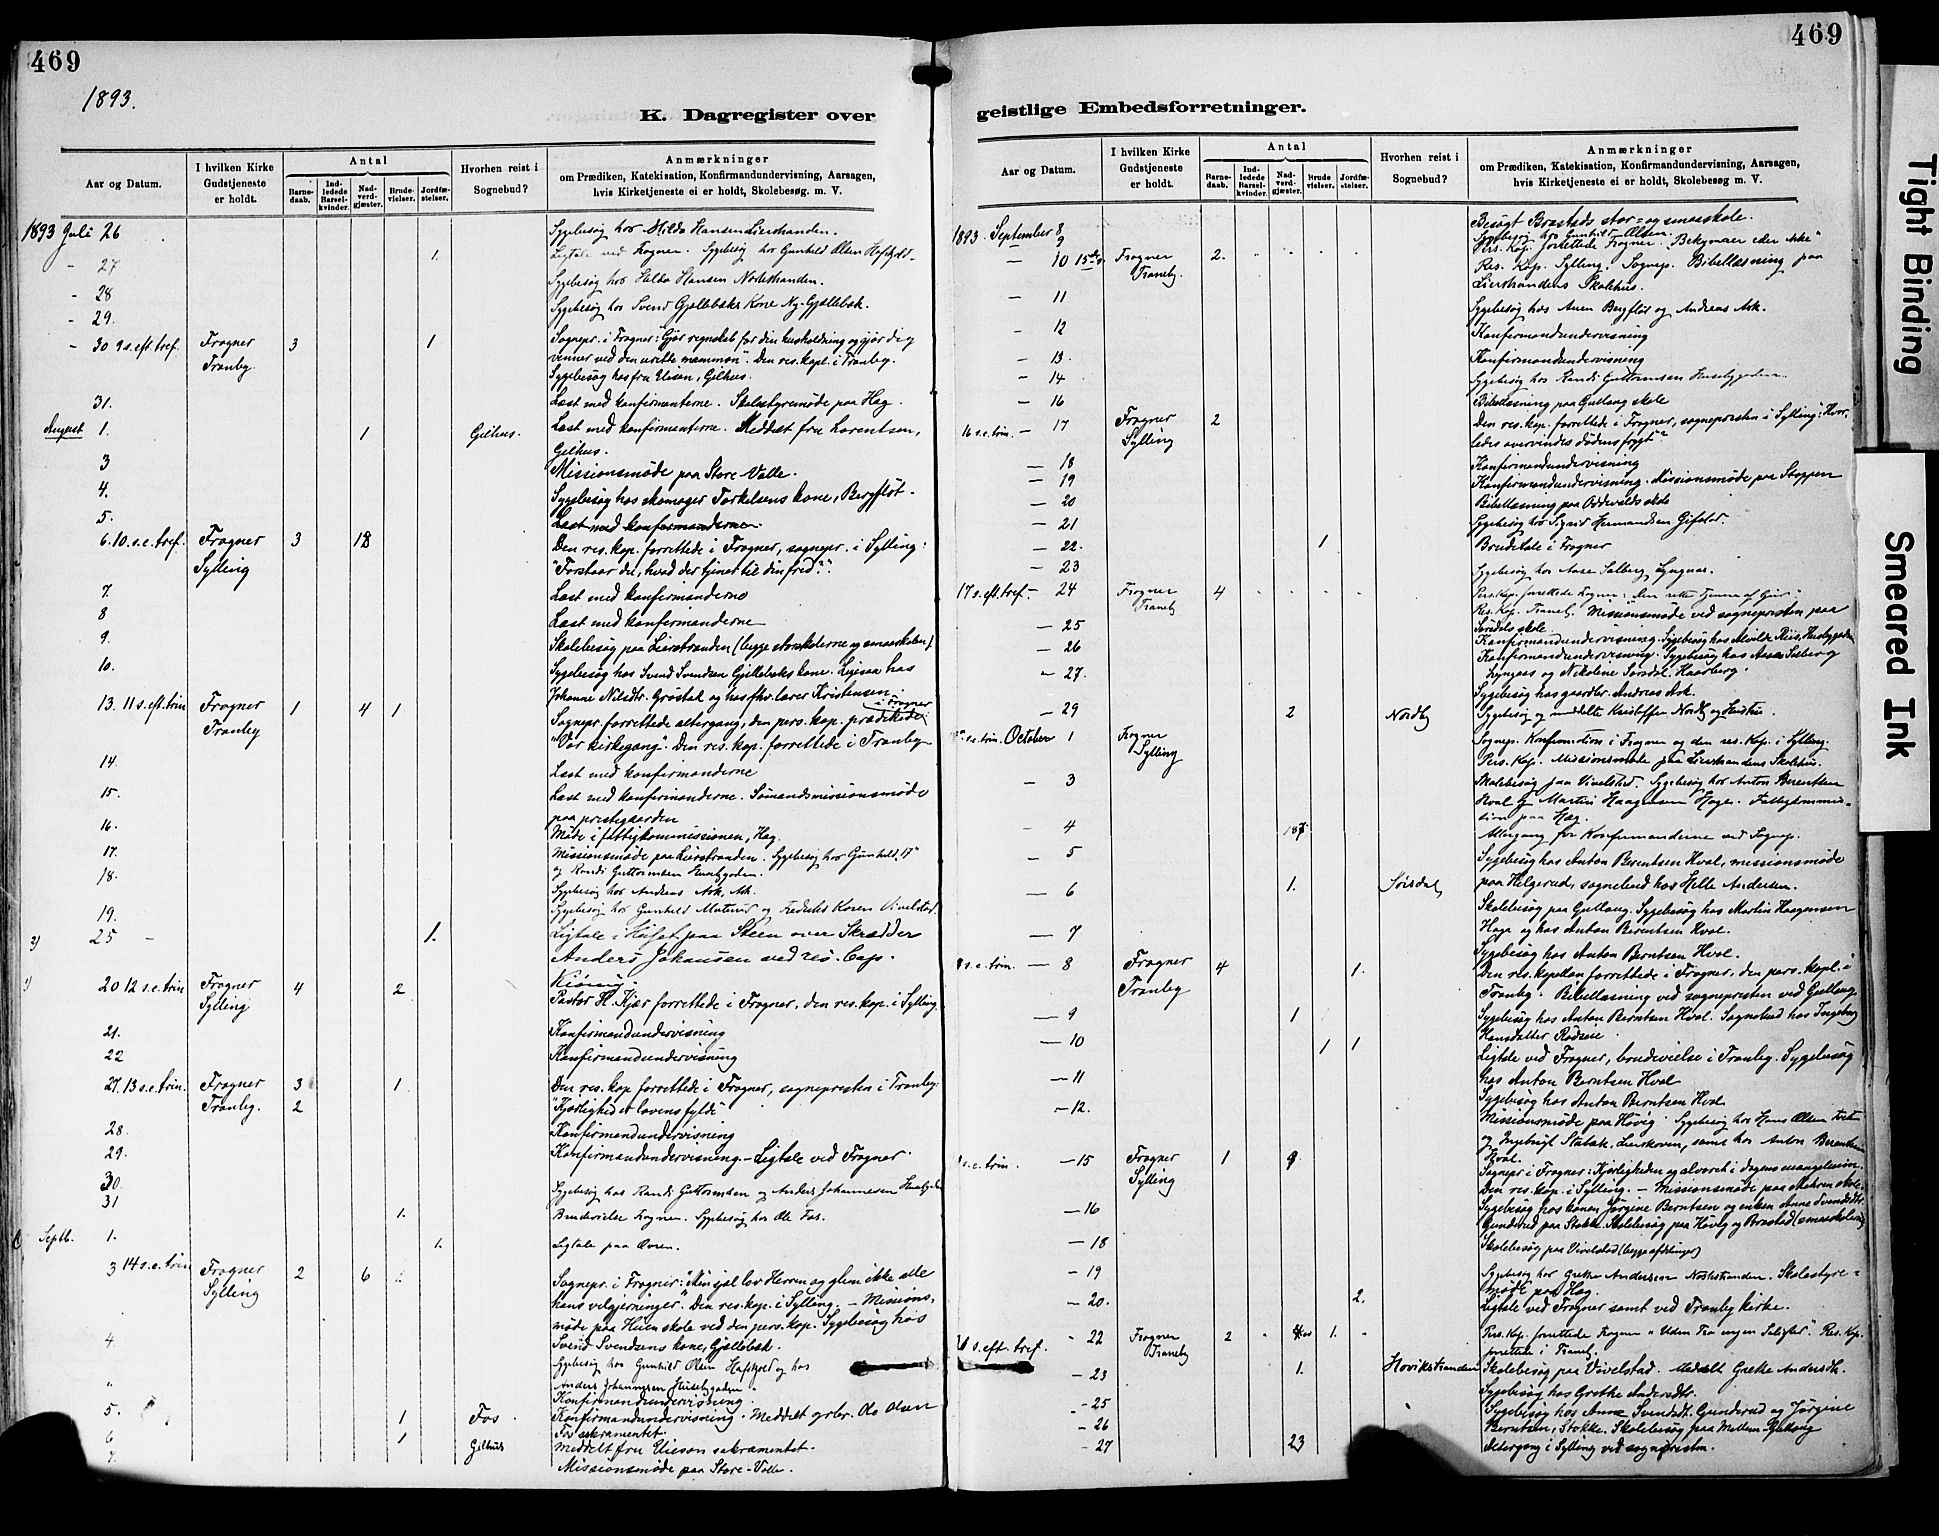 469
1893.
K. Dagregister over
Aar og Datum.
I hvilken Kirke Gudstjeneste er holdt.
Antal
Barnedaab.
Indledede Barselkvinder.
Nadverdgjæster.
Brudevielser.
Jordfæstelser.
Hvorhen reist i Sognebud?
Anmærkninger
om Prædiken, Katekisation, Konfirmandundervisning, Aarsagen,
hvis Kirketjeneste ei er holdt, Skolebesøg m. V.
1893 Juli 26 Sygebesøg hos Hilda Hansen Lierstranden.
- 27 1. Ligtale ved Frogner. Sygebesøg hos Gunhild Olsen
- 28 Sygebesøg hos Hilda Hansen
- 29. Sygebesøg hos Svend Gjellebæks Kone Ny-Gjellebæk.
- 30 9 s. eft. tref. Frogner 3 1 Sognepr. i Frogner: "Gjør regnskab for din husholdning og gjør dig
Tranby. venner ved den urette mammon". Den res. kap. i Tranby.
Sygebesøg hos fru Elison, Gilhus.
31. Læst med konfirmanterne. Skolestyremøde paa Hag.
August 1. 1 Gilhus. Læst med konfirmenterne. Meddelt fru Lorentsen,
Gilhus.
3 Missionsmøde paa Store-Valle.
4. Sygebesøg hos skomager Torkelsens kone, Bergfløt.
5. Læst med konfirmanderne
6. 10. s. e. tref. Frogner 3 18 Den res. kap. forrettede i Frogner, sognepr. i Sylling:
Sylling "Forstaar du, hvad der tjener til din fred?".
7. Læst med konfirmanderne
8 Læst med konfirmanderne
9. Skolebesøg paa Lierstranden (begge storskolerne og smaaskolen).
10. Sygebesøg hos Svend Svendsen Gjellebæks kone. Ligesaa hos
Johanne Nilsdtr. Grøstad og hos fhv. lærer Kristensen
13. 11 s. eft. trin Frogner 1 4 1 Sognepr. forrettede altergang, den pers. kap. prædikede i Frogner
Tranby "Vor kirkegang". Den res. kap. forrettede i Tranby
14. Læst med konfirmanderne
15. Læst med konfirmanderne. Sømandsmissionsmøde
paa prestegaarden
16. Møde i fattigkommissionen, Hag.
17. Missionsmøde paa Lierstranden. Sygebesøg hos Gunhild
og Randi Guttormsen
18. Sygebesøg hos Andreas Ask, Ask.
19. Sygebesøg hos Gunhild og Fredriks Karen Vivelstad.
2) 25 - 1. Ligtale i Huset paa Steen over Skrædder
Anders Johansen ved res. Cap.
1) 20 12 s. e. trin Frogner 4 2 Pastor H. Kjær forrettede i Frogner, den res. kap. i Sylling.
Sylling
21. Konfirmandundervisning
22 Konfirmandundervisning
27. 13 s. e. trin. Frogner 3 1. Den res. kap. forrettede i Frogner, sognepresten i Tranby.
Tranby. 2 "Kjærlighed er lovens fylde"
28. Konfirmandundervisning
29. Konfirmandundervisning. - Ligtale ved Frogner.
30. Sygebesøg hos Randi Guttormsen og Anders Johannesen
31 1. Brudevielse Frogner. Sygebesøg hos Ole Fos.
Septb. 1. 1. Ligtale paa Ovren.
3 14 s. e. trin Frogner 2 6 Sognepr. i Frogner: "Min sjæl lov Herren og glem ikke alle
Sylling hans velgjerninger". Den res. kap. i Sylling. - Missions-
møde paa Heien skole ved den pers. kap. Sygebesøg hos
4 Svend Svendsens kone, Gjellebæk.
Sygebesøg hos Gunhild Olsen og hos
" Anders Johannesen
Konfirmandundervisning.
5. 1 Fos. Konfirmandundervisning. Meddelt grbr. Ole Olsen
Fos sakramentet.
6 1 Gilhus Meddelt fru Elieson sakramentet.
7. Missionsmøde paa Store-Valle.
469
geistlige Embedsforretninger.
Aar og Datum.
I hvilken Kirke Gudstjeneste er holdt.
Antal
Barnedaab.
Indledede Barselkvinder.
Nadverdgjæster.
Brudevielser.
Jordfæstelser.
Hvorhen reist i Sognebud?
Anmærkninger
om Prædiken, Katekisation, Konfirmandundervisning, Aarsagen,
hvis Kirketjeneste ei er holdt, Skolebesøg m. V.
1893 September 8 Besøgt Brastads stor- og smaaskole.
9 Sygebesøg hos Gunhild Olsen.
- 10 15 Frogner 2. Pers. Kap. forrettede Frogner. "Bekymrer eder ikke"
Tranby. Res. Kap. Sylling. Sognep. Bibellæsning paa
Lierstrandens Skolehus.
- 11 Sygebesøg hos Anen Bergfløt og Andreas Ask.
- 12 Konfirmandundervisning
- 13. Konfirmandundervisning
- 14 Sygebesøg hos Randi Guttormsen
- 16 Bibellæsning paa Gullaug skole
16 s. e. trin. - 17 Frogner 2 Den res. kap. forrettede i Frogner, sognepresten i Sylling: "Hvor-
Sylling ledes overvindes dødens frygt"?
- 18 Konfirmandundervisning
- 19 Konfirmandundervisning. Missionsmøde paa Stoppen
- 20 Bibellæsning paa Oddevolds skole
- 21 Sygebesøg hos Sigrid Hermandsen
- 22. 1 Brudetale i Frogner
- 23 Sygebesøg hos Aase Solberg, Lyngaas.
17 s. eft. tref. - 24 Frogner 4 Pers. Kap. forrettede Frogner:
Tranby Res. Kap. Tranby. Missionsmøde ved sognepresten paa
- 25 Sørsdals skole
- 26 Konfirmandundervisning. Sygebesøg hos Alvilde Riis,
Konfirmandundervisning. Sygebesøg hos Aase Solberg
- 27. Lyngaas og Nikoline Sørsdal, Haarberg.
Sygebesøg hos gaardbr. Andreas Ask.
- 29 2 Nordby Sygebesøg og meddelte Kristoffer Nordby og Hustru.
s. e. trin. October 1 Frogner Sognep. Konfirmation i Frogner og den res. Kap. i Sylling.
Sylling Pers. Kap. Missionsmøde paa Lierstrandens Skolehus.
- 3 Skolebesøg paa Vivelstad. Sygebesøg hos Anton Berentsen
Hval og Martin Haagensen Haga. Fattigkommis-
sion paa Hag.
- 4 Altergang for Konfirmanderne ved Sognep.
- 5 Sygebesøg hos Anton Berntsen Hval, missionsmøde
- 6 1. Sørsdal paa Helgerud, sognebud hos Helle Andersen.
Skolebesøg paa Gullaug. Sygebesøg hos Martin Haagensen
- 7 Haga og hos Anton Berntsen Hval.
Sygebesøg hos Anton Berntsen Hval.
s. e. trin. - 8 Frogner 4 1. Den res. kapellan forrettede i Frogner, den pers. kapl. i
Tranby Tranby. Bibellæsning ved sognepresten ved Gullaug.
- 9 1 Sygebesøg hos Anton Berntsen Hval. Sognebud hos Ingeborg
Hansdatter
- 10 1 1 Ligtale ved Frogner, brudevielse i Tranby. Sygebesøg
- 11 hos Anton Berntsen Hval
Sygebesøg hos Anton Berntsen Hval
- 12. Missionsmøde paa Høvig. Sygebesøg hos Hans Olsen
og Ingebrigt Stabæk, Lierskoven, samt hos Anton Berentsen
Hval.
s. e. trin. - 15 Frogner 1 9 Sognepr. i Frogner: Kjærligheden og alvoret i dagens evangelium.
Sylling Den res. kap. i Sylling. - Missionsmøde paa Mæhren skole.
- 16 Sygebesøg hos konen Jørgine Berntsen og enken Anne Svendsdtr.
Gunderud paa Stokke. Skolebesøg paa Høvig og Brastad (smaaskolerne)
- 18 Skolebesøg paa Vivelstad (begge afdelinger)
- 19 Sygebesøg hos Grethe Andersen Skolestyre-
møde paa Hag.
- 20. 2. Ligtale ved Frogner samt ved Tranby kirke.
s. eft. tref. - 22 Frogner 2 1. Pers. Kap. forrettede Frogner "Uden Tro ingen Salighed". Res. Kap.
Tranby forrettede i Tranby.
- 23 1. Hovikstranden Skolebesøg paa Vivelstad. Meddelt Grethe Andersdtr.
Sygebesøg hos Grethe Andersdtr.
- 25 Sygebesøg hos Anne Svendsdt. Gunderud og Jørgine
- 26 Berntsen, Stokke. Skolebesøg paa Mellem-Gullaug
- 27 23 Altergang i Sylling ved sognepresten.
Tight Binding
Smeared Ink